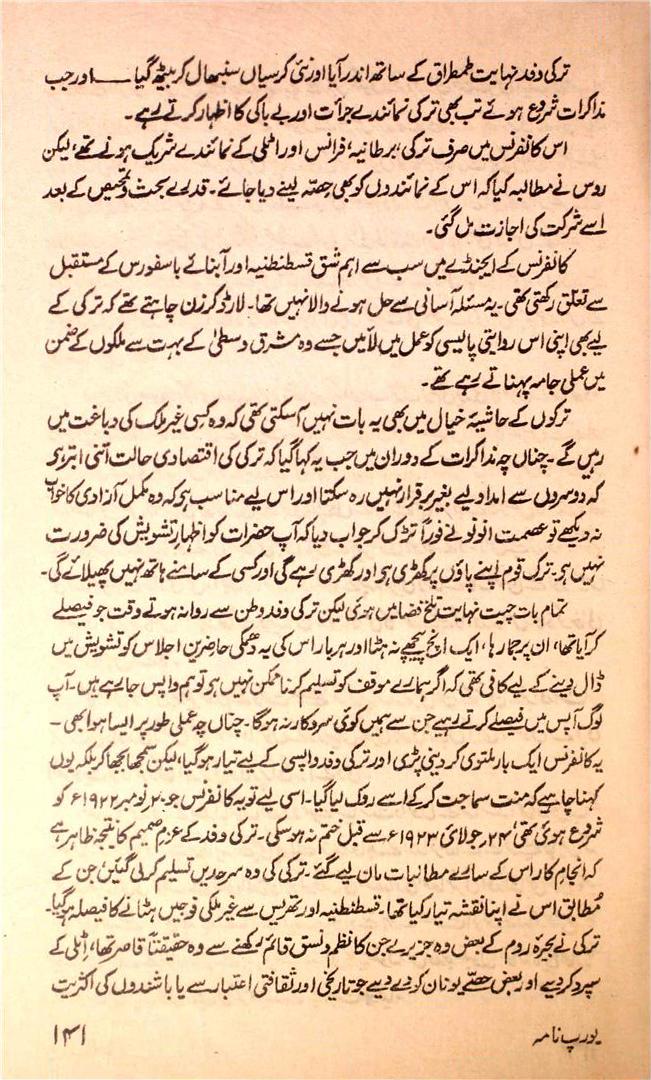 ترکی وفد نہایت طمطراق کے ساتھ اندر آیا اور نئی کرسیاں سنبھال کر بیٹھ گیا ـــــ اور جب
مذاکرات شروع ہوئے تب بھی ترکی نمائندے جرأت اور بے باکی کا اظہار کرتے رہے۔
اس کانفرنس میں صرف ترکی، برطانیہ، فرانس اور اٹلی کے نمائندے شریک ہونے تھے، لیکن
روس نے مطالبہ کیا کہ اس کے نمائندوں کو بھی حصّہ لینے دیا جائے۔ قدرے بحث و تمحیص کے بعد
اسے شرکت کی اجازت مل گئی۔
کانفرنس کے ایجنڈے میں سب سے اہم شق قسطنطنیہ اور آبنائے باسفورس کے مستقبل
سے تعلق رکھتی تھی۔ یہ مسئلہ آسانی سے حل ہونے والا نہیں تھا۔ لارڈ کرزن چاہتے تھے کہ ترکی کے
لیے بھی اپنی اس روایتی پالیسی کو عمل میں لائیں جسے وہ مشرق وسطیٰ کے بہت سے ملکوں کے ضمن
میں عملی جامہ پہناتے رہے تھے۔
ترکوں کے حاشیۂ خیال میں بھی یہ بات نہیں آ سکتی تھی کہ وہ کسی غیر ملک کی دباغت میں
رہیں گے۔ چناں چہ مذاکرات کے دوران میں جب یہ کہا گیا کہ ترکی کی اقتصادی حالت اتنی ابتر ہو
کہ دوسروں سے امداد لیے بغیر برقرار نہیں رہ سکتا اور اس لیے مناسب ہو کہ وہ مکمل آزادی کا خواب
نہ دیکھے تو عصمت انونو نے فوراً تڑک کر جواب دیا کہ آپ حضرات کو اظہارِ تشویش کی ضرورت
نہیں ہو۔ ترک قوم اپنے پاؤں پر کھڑی ہو اور کھڑی رہے گی اور کسی کے سامنے ہاتھ نہیں پھیلائے گی۔
تمام بات چیت نہایت تلخ فضا میں ہوئی لیکن ترکی وفد وطن سے روانہ ہوتے وقت جو فیصلے
کر آیا تھا، ان پر جما رہا، ایک انچ پیچھے نہ ہٹا اور ہر بار اس کی یہ دھمکی حاضرینِ اجلاس کو تشویش میں
ڈال دینے کے لیے کافی تھی کہ اگر ہمارے موقف کو تسلیم کرنا ممکن نہیں ہو تو ہم واپس جا رہے ہیں۔ آپ
لوگ آپس میں فیصلے کرتے رہیے جن سے ہمیں کوئی سروکار نہ ہوگا۔ چناں چہ عملی طور پر ایسا ہوا بھی۔
یہ کانفرنس ایک بار ملتوی کر دینی پڑی اور ترکی وفد واپسی کے لیے تیار ہو گیا، لیکن سمجھا بجھا کر بلکہ یوں
کہنا چاہیے کہ منت سماجت کر کے اسے روک لیا گیا۔ اسی لیے تو یہ کانفرنس جو ۲۰ نومبر ۱۹۲۲ء کو
شروع ہوئی تھی، ۲۴ر جولائی ۱۹۲۳ء سے قبل ختم نہ ہو سکی۔ ترکی وفد کے عزمِ صمیم کا نتیجہ ظاہر ہے
کہ انجامِ کار اس کے سارے مطالبات مان لیے گئے۔ ترکی کی وہ سرحدیں تسلیم کر لی گئیں جن کے
مطابق اس نے اپنا نقشہ تیار کیا تھا۔ قسطنطنیہ اور تھریس سے غیر ملکی فوجیں ہٹانے کا فیصلہ ہو گیا۔
ترکی نے بحیرۂ روم کے بعض وہ جزیرے جن کا نظم و نسق قائم رکھنے سے وہ حقیقتاً قاصر تھا، اٹلی کے
سپرد کر دیے اور بعض حصّے یونان کو دے دیے جو تاریخی اور ثقافتی اعتبار سے یا باشندوں کی اکثریت
یورپ نامہ
۱۴۱